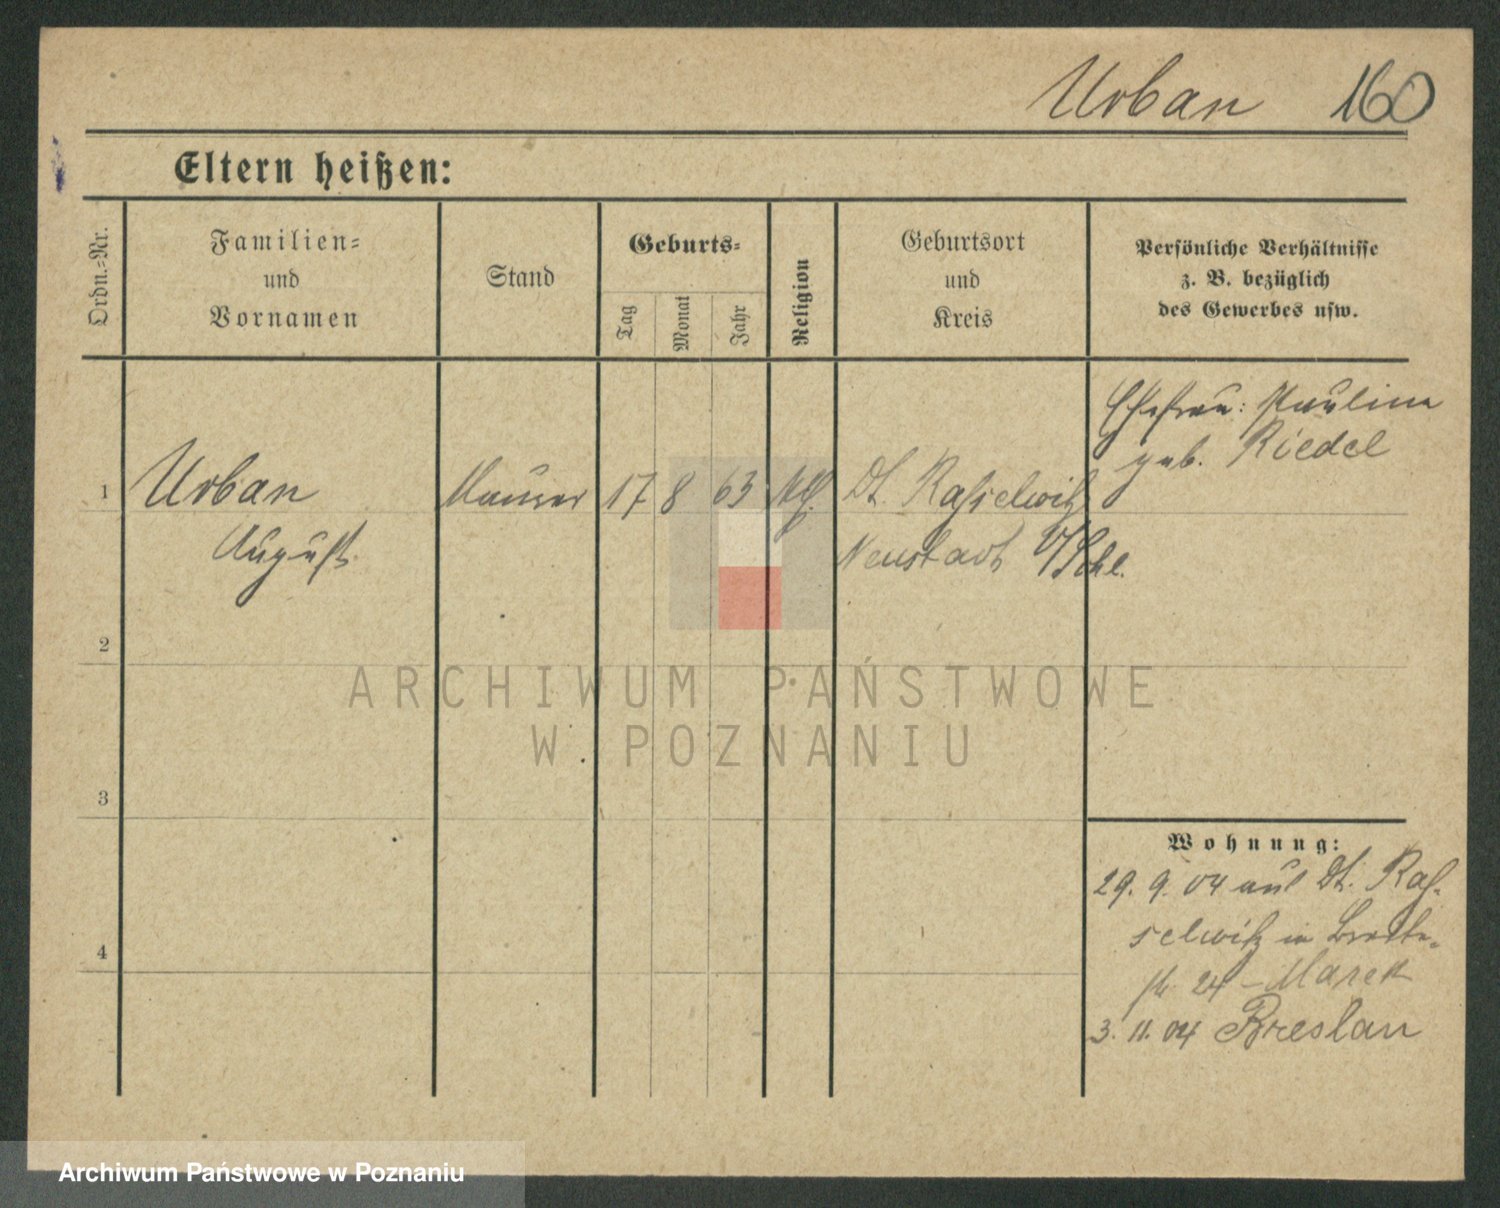 Urban 160
Eltern heißen:
Ordn.-Nr.
Familien-
und
Vornamen
Stand
Geburts-
Tag
Monat
Jahr
Religion
Geburtsort
und
Kreis
Persönliche Verhältnisse
z. B. bezüglich
des Gewerbes usw.
Ehefrau: Paulina
geb. Riedel
1 Urban Maurer 17 8 63 Dt. Rasselwitz
August Neustadt O/Schl.
2
3
4
Wohnung:
29. 9. 04 aus Dt. Ras-
selwitz in
24 - Marek
3. 11. 04 Breslau
ARCHIWUM PAŃSTWOWE
W POZNANIU
Archiwum Państwowe w Poznaniu